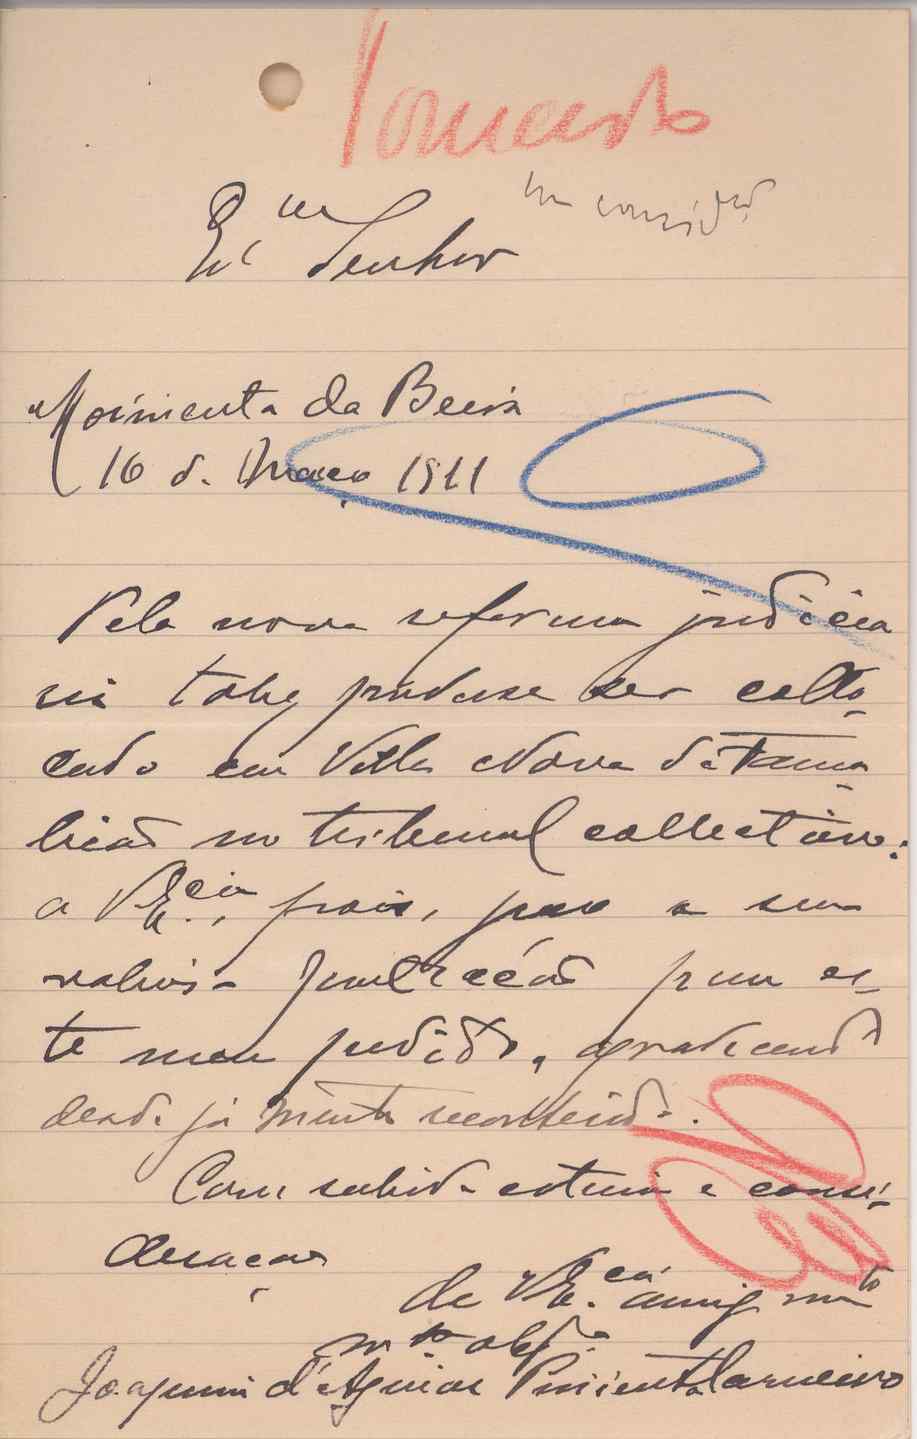 Ex.mo Senhor
Moimenta da Beira
16 de Março 1911
Pela nova reforma judicia
ria talvez pudesse ser collo-
cado em Villa Nova de Fama-
licão no tribunal collectivo:
a V Ex.cia, pois, peço a sua
valiosa protecção para es-
te meu pedido, agradecendo
desde já muito reconhecido.
Com subida estima e consi-
deração
de V Ex.cia amig. mto
mto obgdo
Joaquim d'Aguiar Pimenta Carneiro